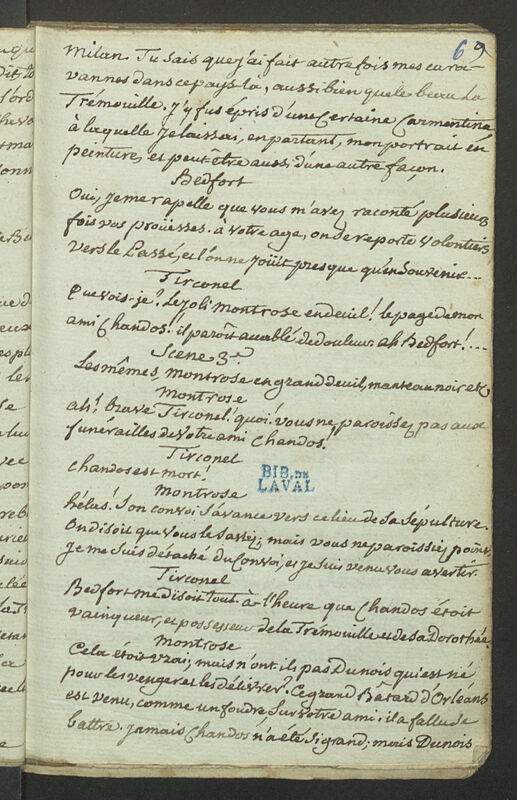 69
Milan. Tu sais que j'ai fait autre fois mes cara-
vannes dans ce pays là, aussi bien que le beau La
Trémouille. J'y fus épris d'une certaine Carmentine
à laquelle je laissai, en partant, mon portrait en
peinture, et peut être aussi d'une autre façon.
Bedfort
Oui, je me rapelle que vous m'avez raconté plusieurs
fois vos prouesses. à votre age, on se reporte volontiers
vers le Passé, et l'on ne joüit presque qu'en Souvenir...
Tirconel
Que vois-je! Le joli Montrose en deuil! le page de mon
ami Chandos!! il paroît accablé de douleur. ah Bedfort!....
Scene 3e
Les mêmes, Montrose en grand deuil, manteau noir etc
Montrose
ah! brave Tirconel! quoi! vous ne paroissez pas aux
funerailles de votre ami Chandos!
Tirconel
Chandos est mort!
BIB. DE
LAVAL
Montrose
hélas! Son convoi s'avance vers ce lieu de sa Sépulture.
On disoit que vous le Saviez; mais vous ne paroissiez point.
Je me suis detaché du Convoi, et je suis venu vous avertir.
Tirconel
Bedfort me disoit tout à l'heure que Chandos étoit
vainqueur, et possesseur de la Trémouille et de sa Dorothée.
Montrose
Cela étoit vrai; mais n'ont-ils pas Dunois qui est né
pour les venger et les délivrer? Ce grand Bâtard d'Orléans
est venu, comme un foudre, Sur votre ami: il a fallu se
battre. Jamais Chandos n'a été Si grand; mais Dunois